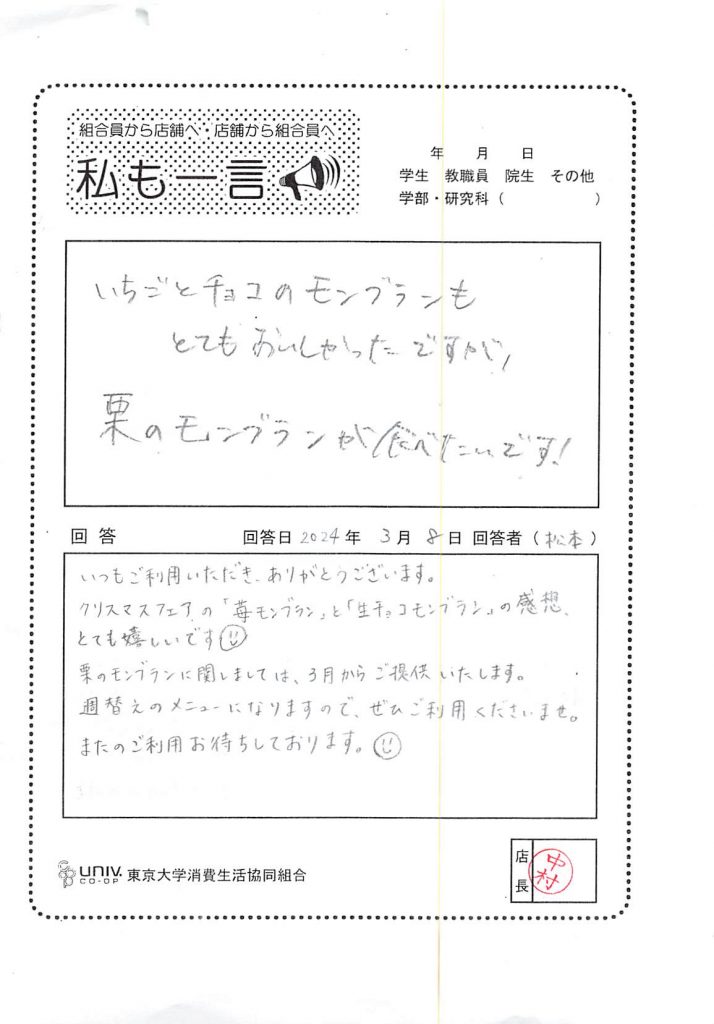 組合員から店舗へ・店舗から組合員へ
私も一言
年 月 日
学生 教職員 院生 その他
学部・研究科（ ）
いちごとチョコのモンブランも
とてもおいしかったですが、
栗のモンブランが食べたいです!
回答 回答日 2024年 3月 8日 回答者（松本）
いつもご利用いただき、ありがとうございます。
クリスマスフェアの「苺モンブラン」と「生チョコモンブラン」の感想、
とても嬉しいです
栗のモンブランに関しましては、3月からご提供いたします。
週替えのメニューになりますので、ぜひご利用くださいませ。
またのご利用お待ちしております。
UNIV. CO-OP 東京大学消費生活協同組合
店長 中村